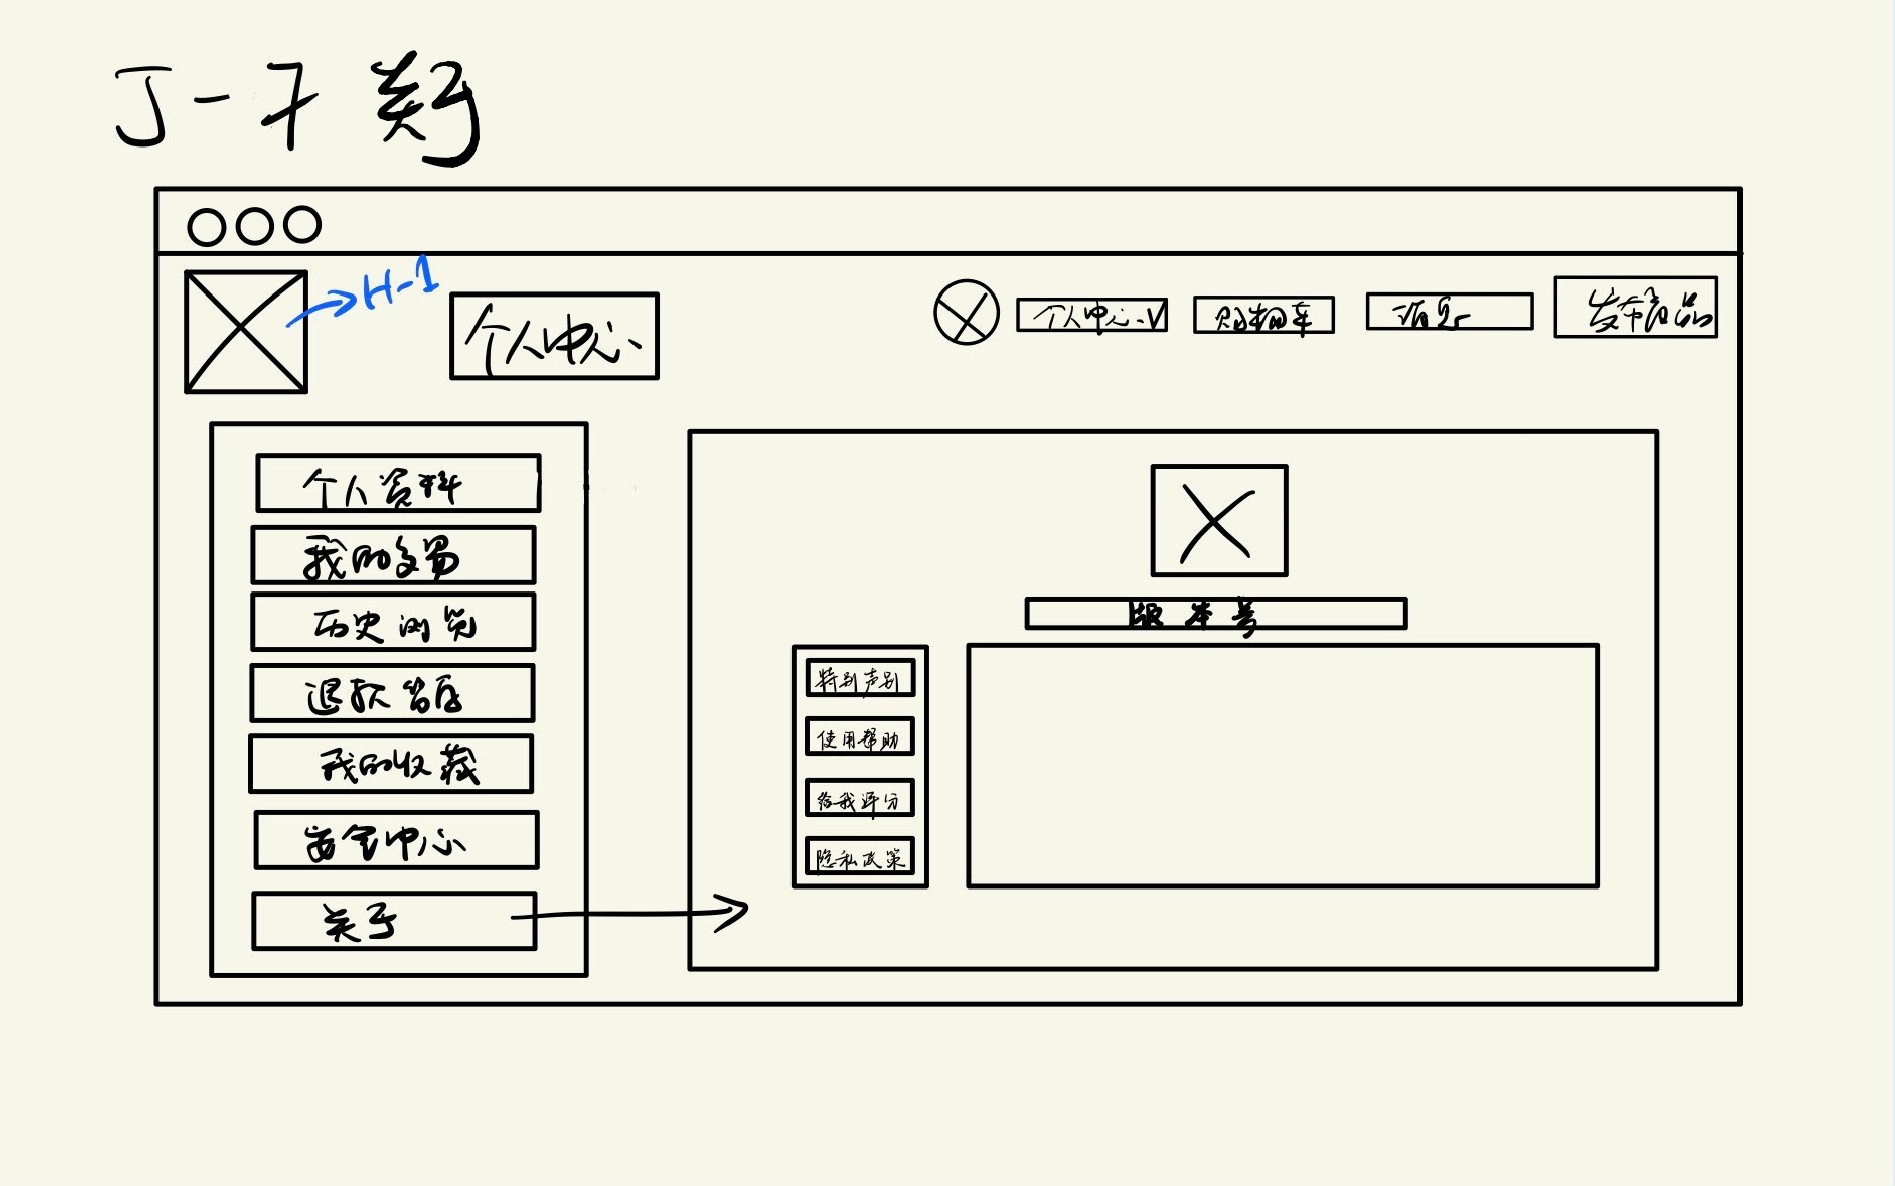 J-7 关于
H-1
个人中心
个人中心
购物车
消息
发布商品
个人资料
我的交易
历史浏览
退款售后
我的收藏
安全中心
关于
版本号
特别声别
使用帮助
给我评分
隐私政策